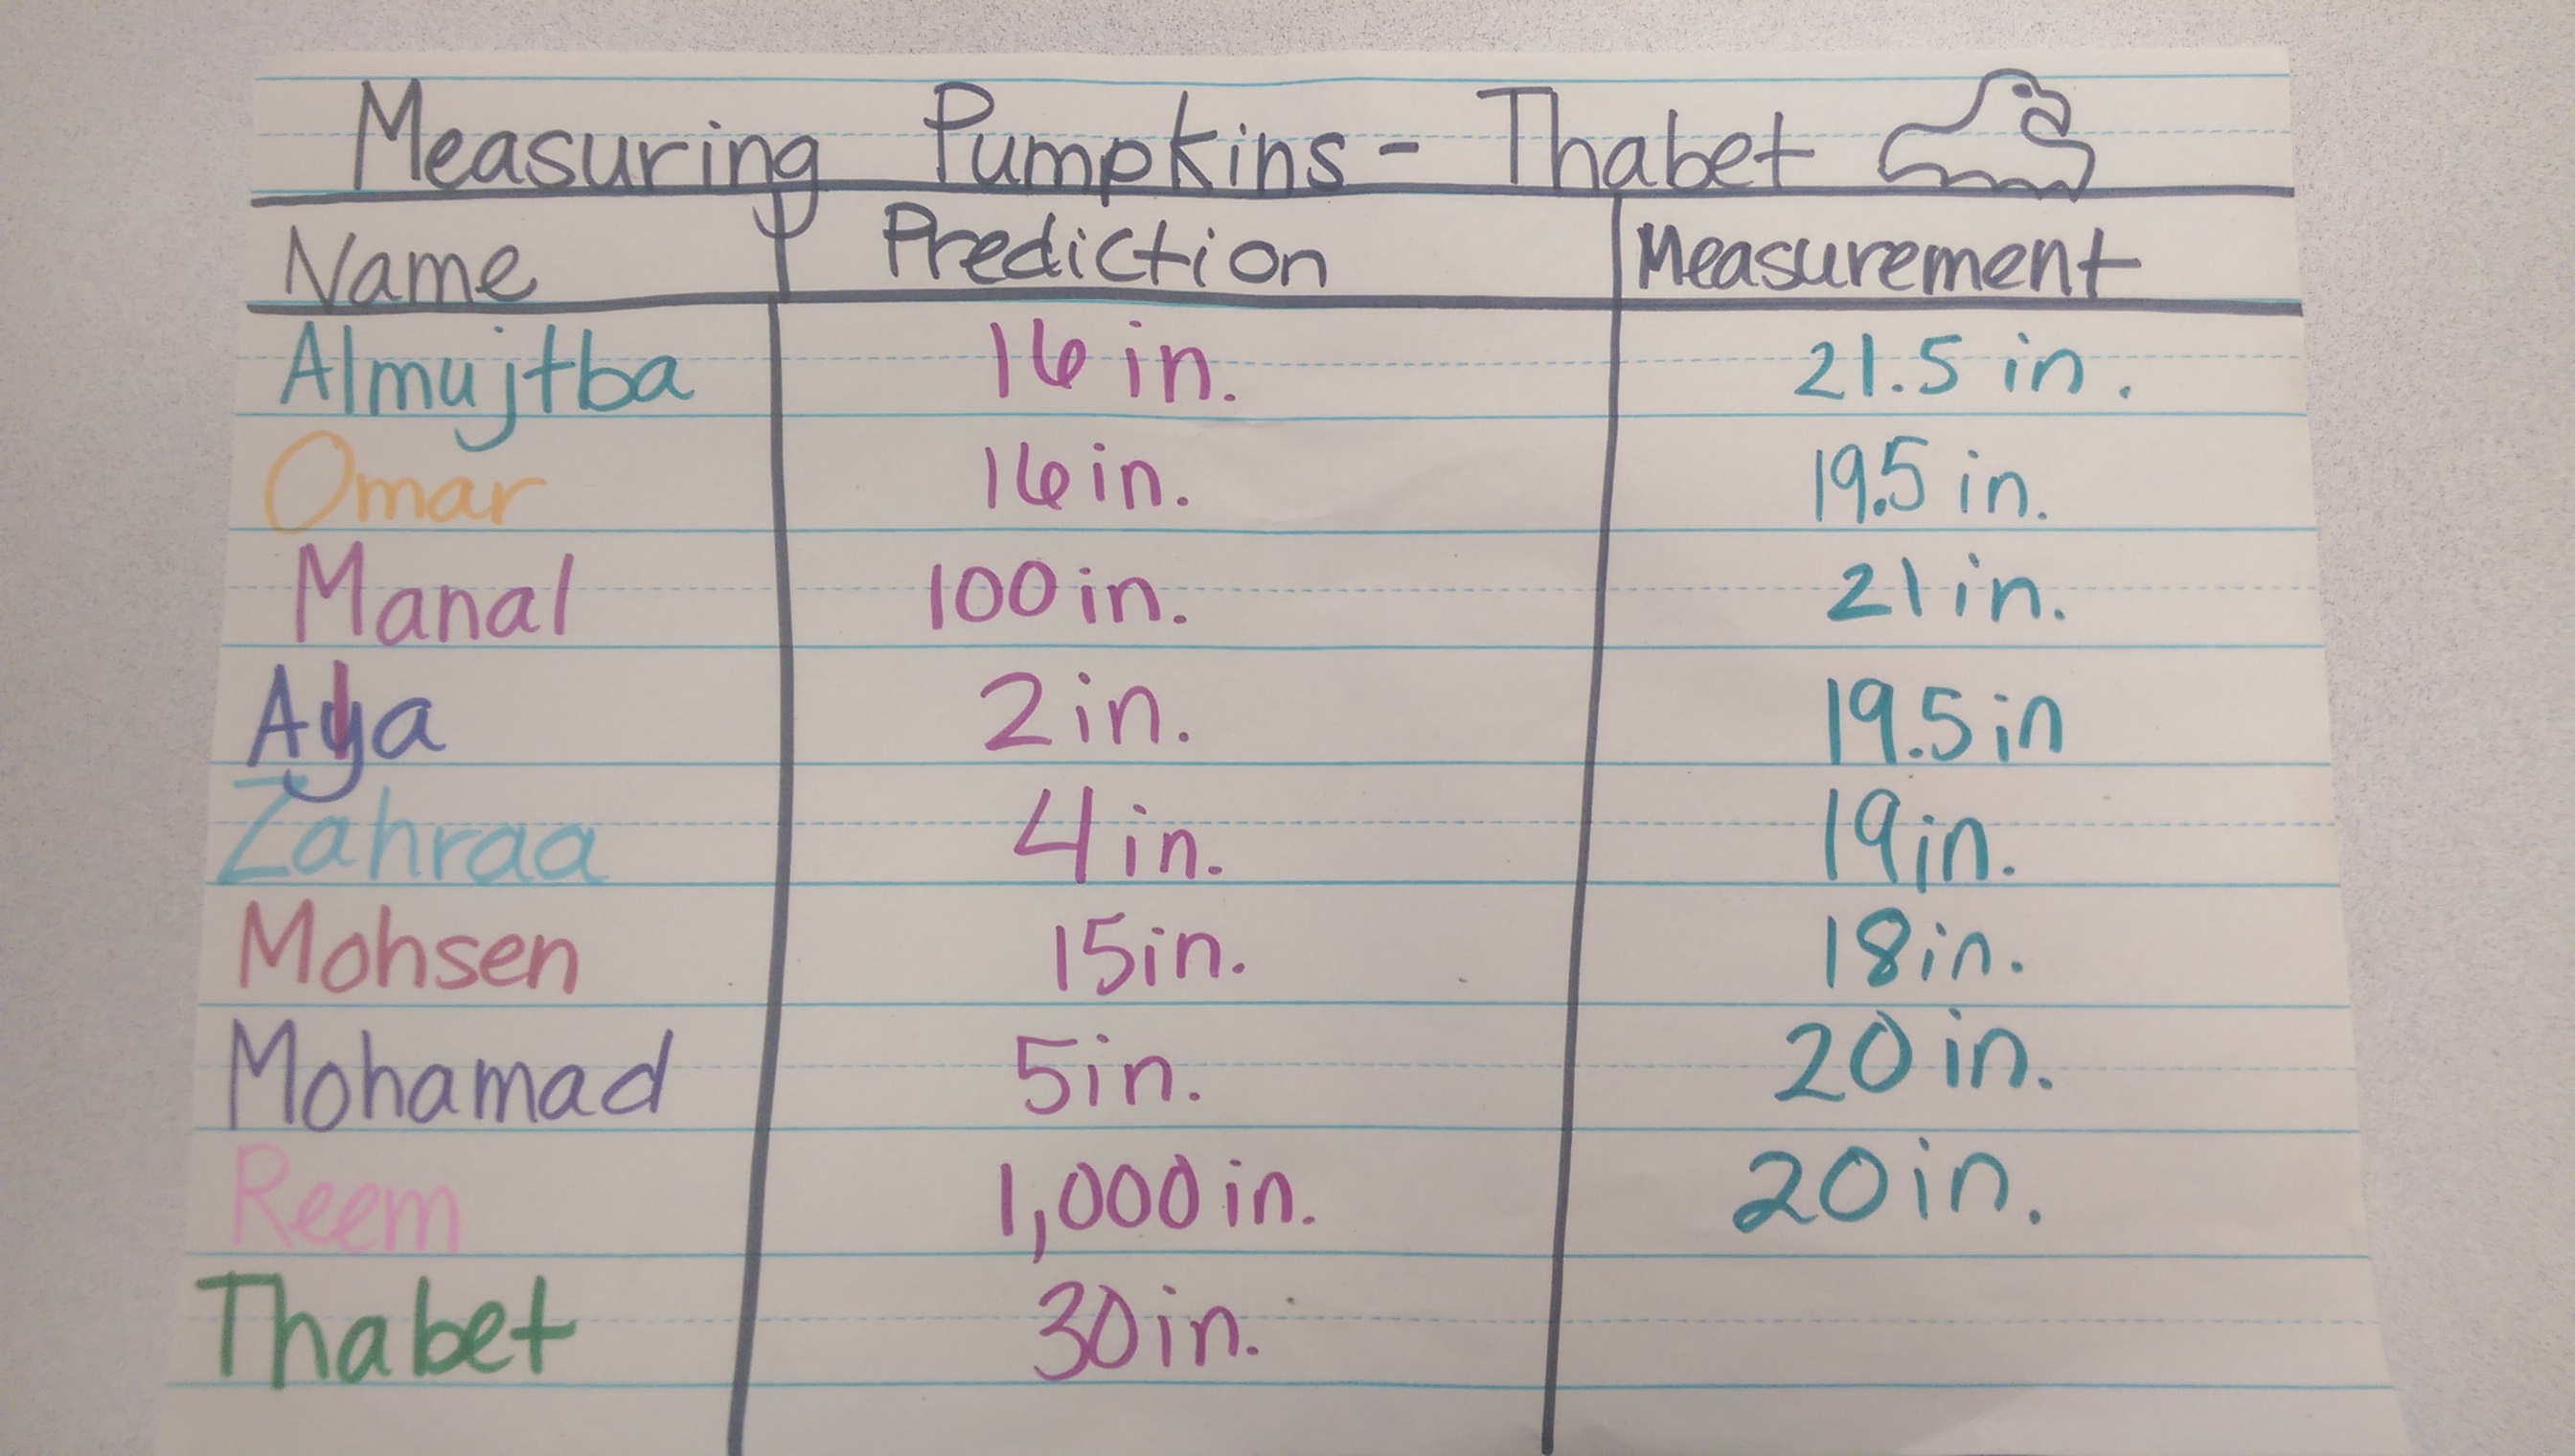 Measuring Pumpkins - Thabet
Name Prediction Measurement
Almujtba 16 in. 21.5 in.
Omar 16 in. 19.5 in.
Manal 100 in. 21 in.
Aya 2 in. 19.5 in
Zahraa 4 in. 19 in.
Mohsen 15 in. 18 in.
Mohamad 5 in. 20 in.
Reem 1,000 in. 20 in.
Thabet 30 in.